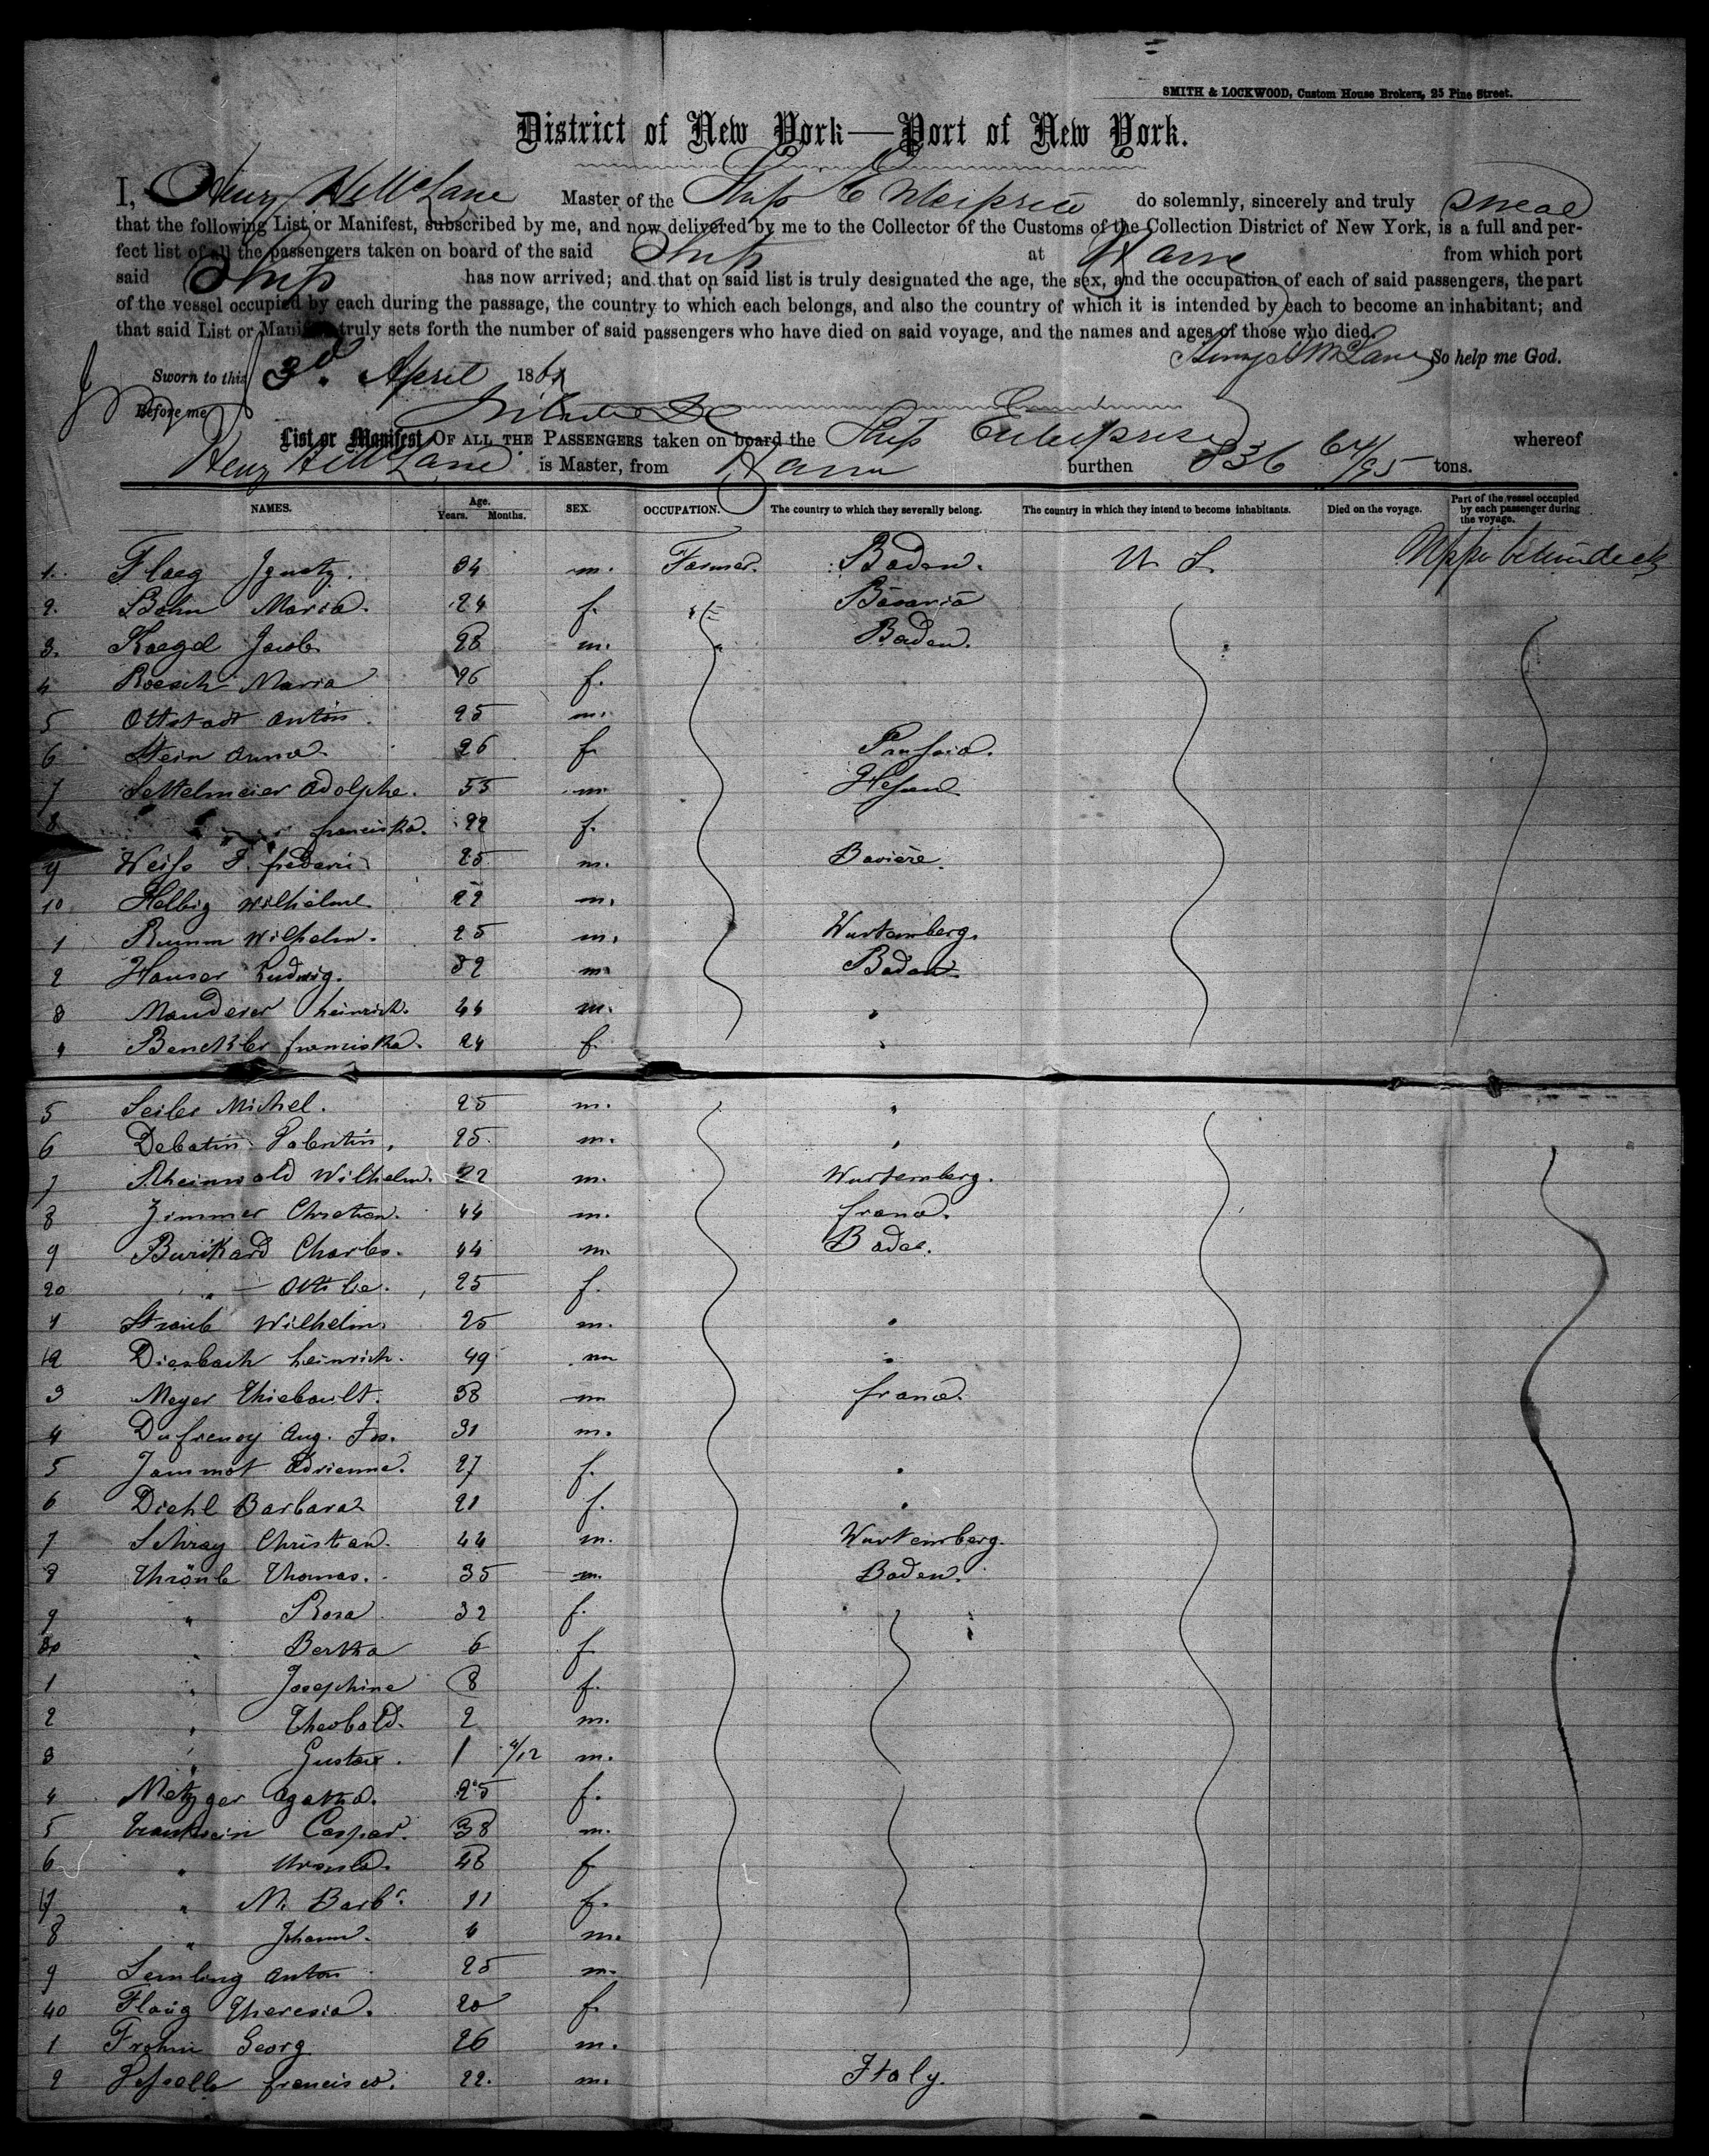 SMITH & LOCKWOOD, Custom House Brokers, 25 Pine Street.
District of New York—Port of New York.
I, Henry McLane Master of the Ship Enterprise do solemnly, sincerely and truly swear
that the following List or Manifest, subscribed by me, and now delivered by me to the Collector of the Customs of the Collection District of New York, is a full and per-
fect list of all the passengers taken on board of the said Ship at Havre from which port
said Ship has now arrived; and that on said list is truly designated the age, the sex, and the occupation of each of said passengers, the part
of the vessel occupied by each during the passage, the country to which each belongs, and also the country of which it is intended by each to become an inhabitant; and
that said List or Manifest truly sets forth the number of said passengers who have died on said voyage, and the names and ages of those who died.
Henry McLane So help me God.
Sworn to this 3d. April 186
Before me
List or Manifest OF ALL THE PASSENGERS taken on board the Ship Enterprise whereof
Henry McLane is Master, from Havre burthen 836 64/95 tons.
NAMES. Age. Years. Months. SEX. OCCUPATION. The country to which they severally belong. The country in which they intend to become inhabitants. Died on the voyage. Part of the vessel occupied by each passenger during the voyage.
1. Flaeg Ignatz. 34 m. Farmer. Baden. U. S. Upper betwindeck
2. Bohn Maria. 24 f. Bavaria
3. Kaegel Jacob 28 m. Baden.
4 Roesch Maria 26 f.
5 Ottstadt Anton. 25 m.
6 Stein Anna. 26 f.
7 Settelmeier Adolphe. 55 m. Hessen
8 " franciska. 22 f.
9 Weiss J. frederic 25 m. Bavière.
10 Helbig Wilhelm 22 m.
1 Rumm Wilhelm. 25 m. Wurtemberg.
2 Hauser Ludwig. 32 m. Baden
3 Manderer heinrich. 44 m. "
4 franciska. 24 f. "
5 Seiler Michel. 25 m. "
6 Debatin Valentin, 25 m. "
7 Rheinwald Wilhelm. 22 m. Wurtemberg.
8 Zimmer Christian. 44 m. france.
9 Burikard Charles. 44 m. Baden.
20 " Ottilie. 25 f.
1 Straub Wilhelm. 25 m. "
2 Diesbach heinrich. 49 m "
3 Meyer Thiebault. 38 m france.
4 Dufrenoy Aug. Jos. 31 m.
5 Jammot Adrienne. 27 f. "
6 Diehl Barbara 21 f. "
7 Schray Christian. 44 m. Wurtemberg.
8 Thomas. 35 m. Baden.
9 " Rosa 32 f.
30 " Bertha 6 f
1 " Josephine 8 f.
2 " Theobald. 2 m.
3 " Gustav. 1 4/12 m.
4 Metzger Agatha. 25 f.
5 Caspar. 38 m.
6 " Ursula. 48 f
7 " M. Barb. 11 f.
8 " Johann. 4 m.
9 Semling Anton 25 m.
40 Flaüg Theresia. 20 f.
1 Frohn Georg 26 m.
2 francisco. 22. m. Italy.